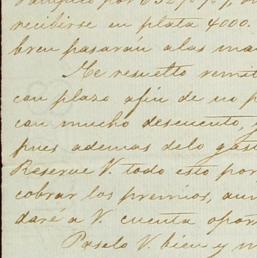 recibirse en plata 4000.
bren pasarán a las ma
He resuelto remit
con plazo afin de no p
con mucho descuento,
pues ademas delo gas
Reserve V. todo esto por
cobrar los premios, aun
daré a V. cuenta opor
Páselo V. bien y m